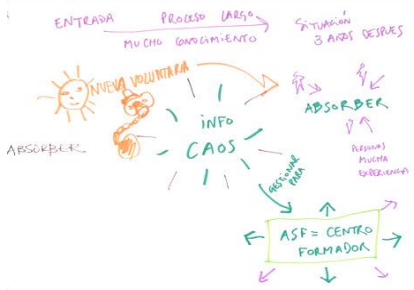 ENTRADA
PROCESO LARGO
MUCHO CONOCIMIENTO
SITUACIÓN
3 AÑOS DESPUES
NUEVA VOLUNTARIA
INFO
CAOS
ABSORBER
ABSORBER
PERSONAS
MUCHA
EXPERIENCIA
GESTIONAR
PARA
ASF = CENTRO
FORMADOR